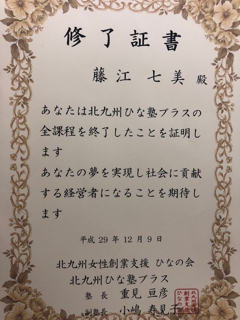 修了証書
藤江 七美 殿
あなたは北九州ひな塾プラスの
全課程を終了したことを証明し
ます
あなたの夢を実現し社会に貢献
する経営者になることを期待し
ます
平成 29 年 12 月 9 日
北九州女性創業支援 ひなの会
北九州ひな塾プラス
塾 長 重見 亘彦
副塾長 小嶋 春見子